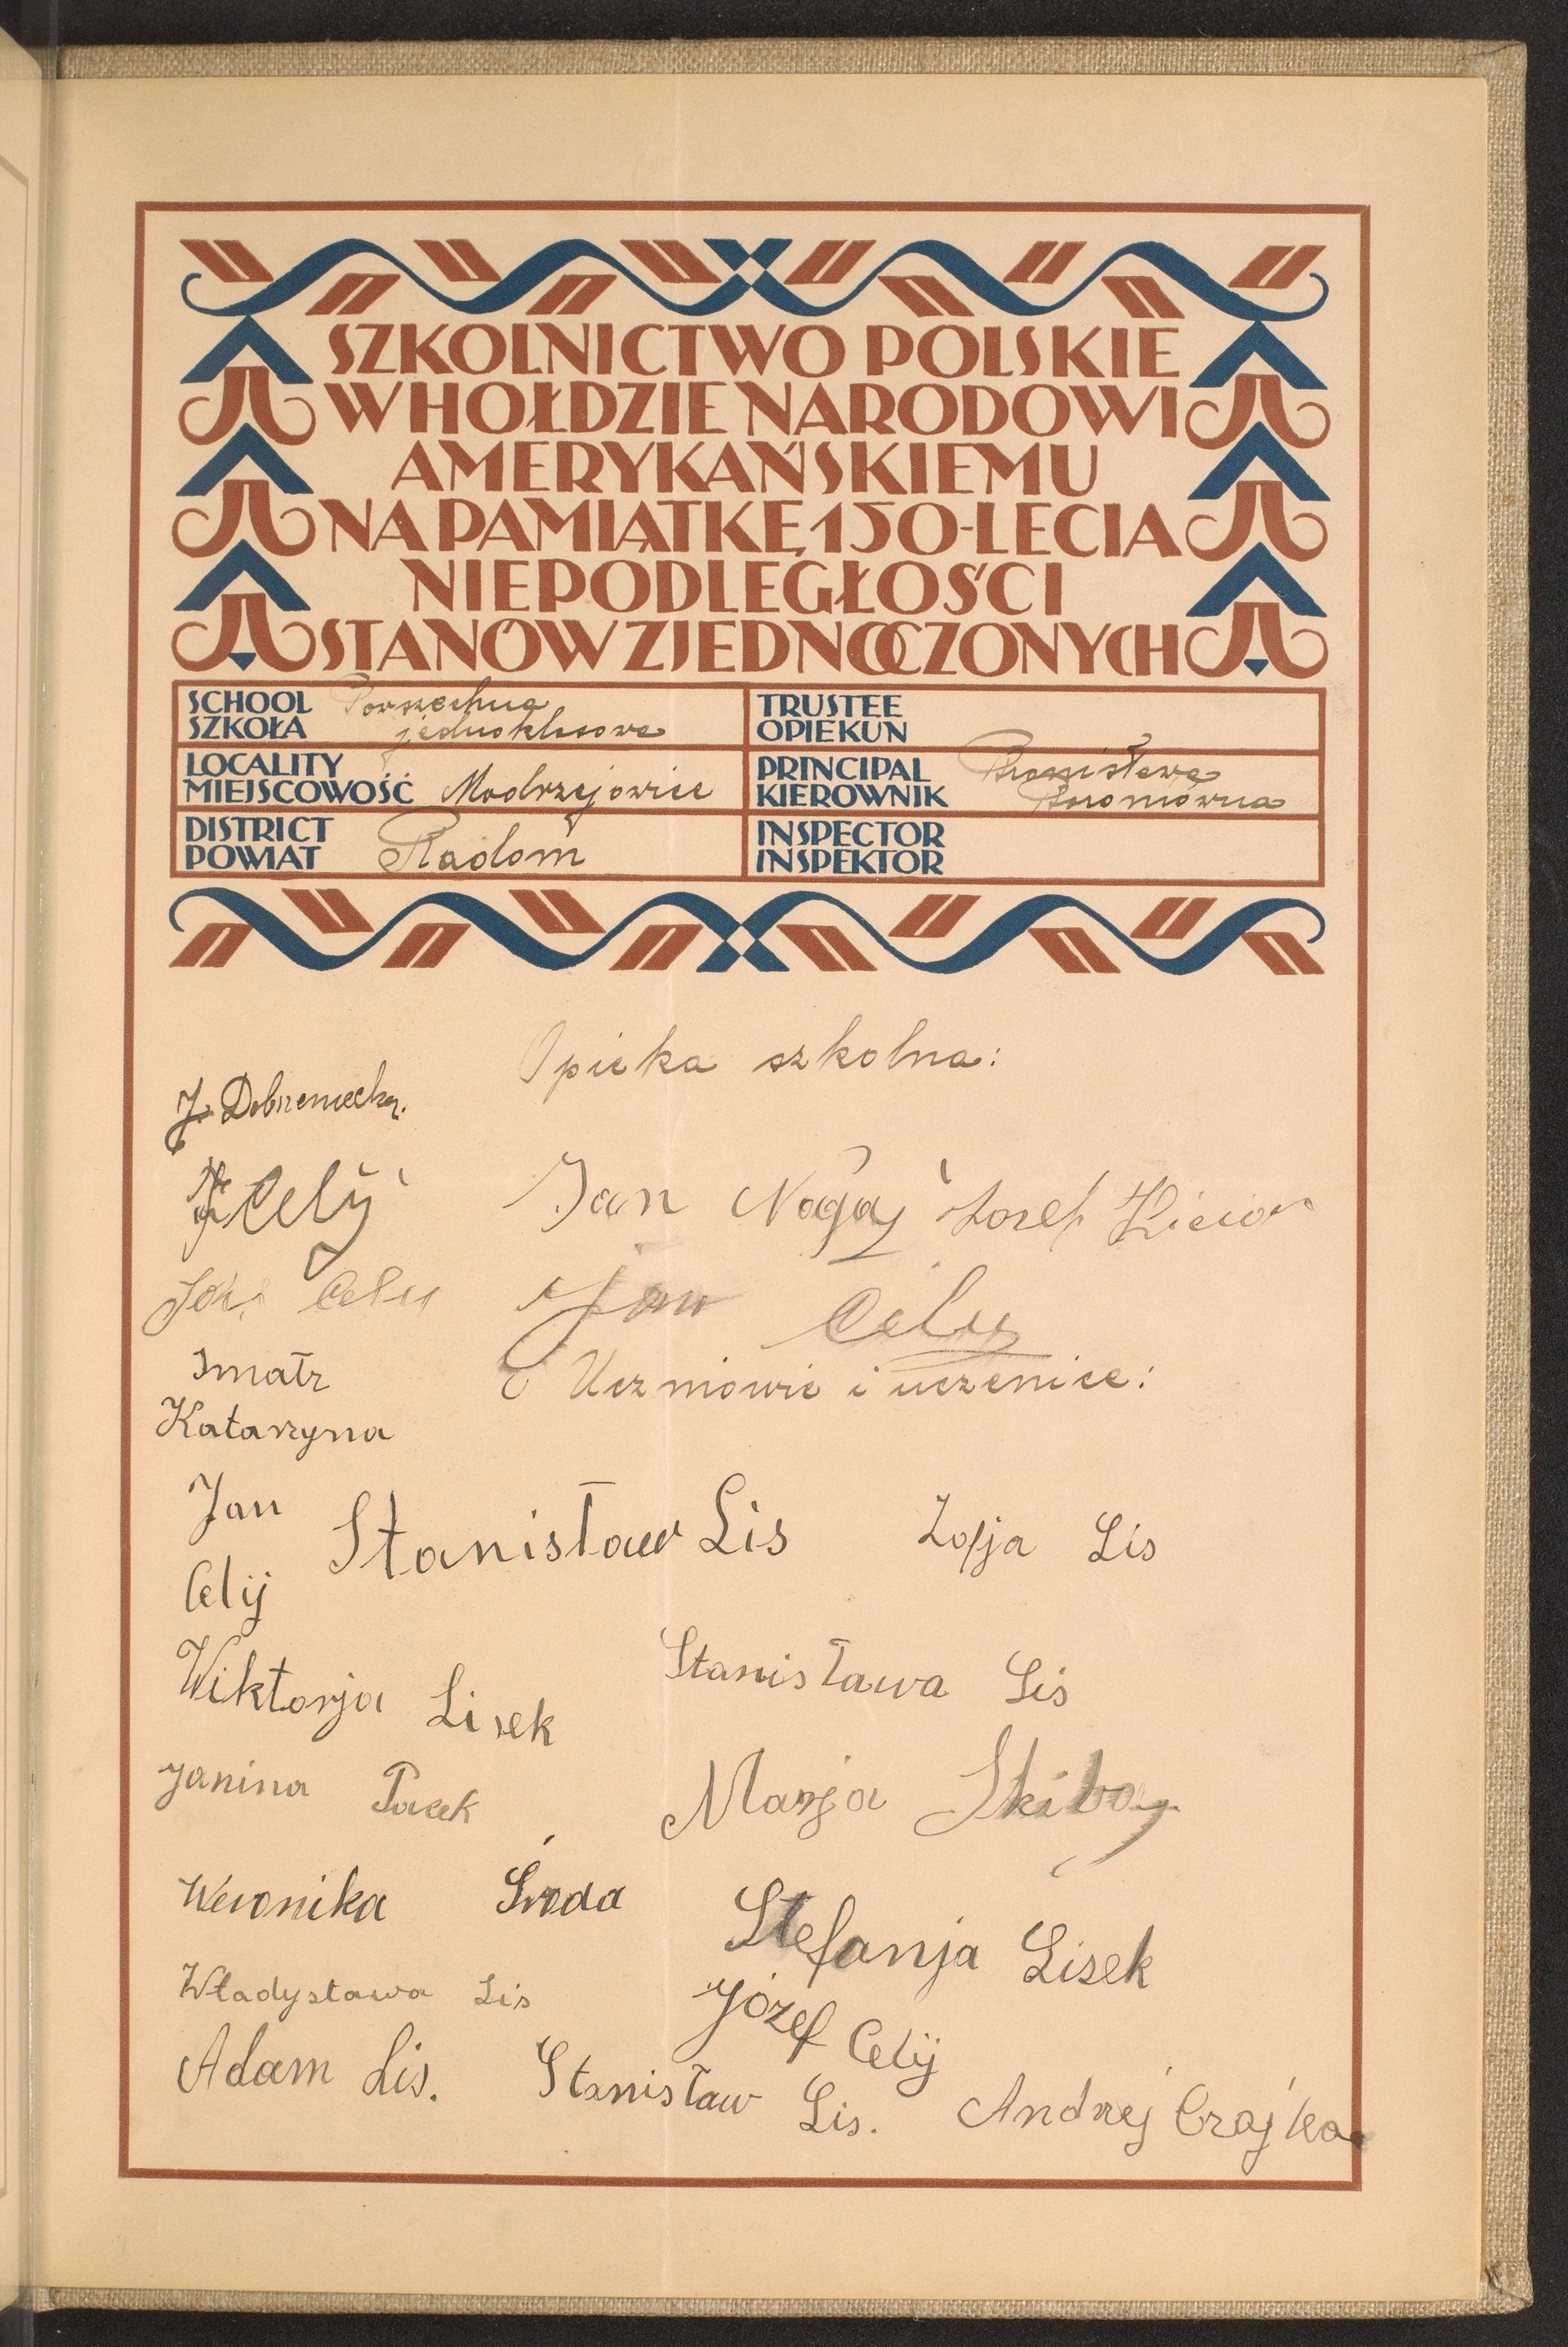 SZKOLNICTWO POLSKIE
W HOŁDZIE NARODOWI
AMERYKAŃSKIEMU
NA PAMIĄTKĘ 150-LECIA
NIEPODLEGŁOŚCI
STANÓW ZJEDNOCZONYCH
SCHOOL
SZKOŁA
Powszechna
jednoklasowa
TRUSTEE
OPIEKUN
LOCALITY
MIEJSCOWOŚĆ
Modrzejowice
PRINCIPAL
KIEROWNIK
Bronisława
DISTRICT
POWIAT
Radom
INSPECTOR
INSPEKTOR
Opieka szkolna:
J. Dobrzeniecka.
Celÿ
Jan Nogaj Józef
Celu Jan Celu
Uczniowie i uczenice:
Katarzyna
Jan
Celij
Stanisław Lis Zofja Lis
Wiktorja Lisek
Stanisława Lis
Janina Pacek
Marja Skiba
Weronika Środa
Stefanja Lisek
Władysława Lis
Józef Celij
Adam Lis. Stanisław Lis. Andrzej Czajka